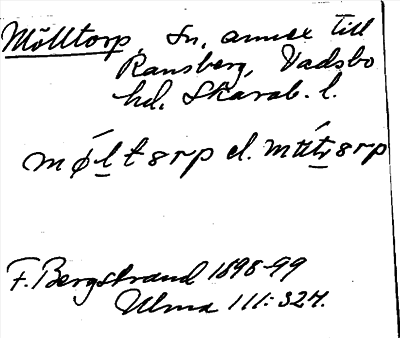 Mölltorp, Sn, annex till
Ransberg, Vadsbo
hd, Skarab. l.
mǿl̲tɘrp el.
F. Bergstrand 1898-99
Ulma 111:324.